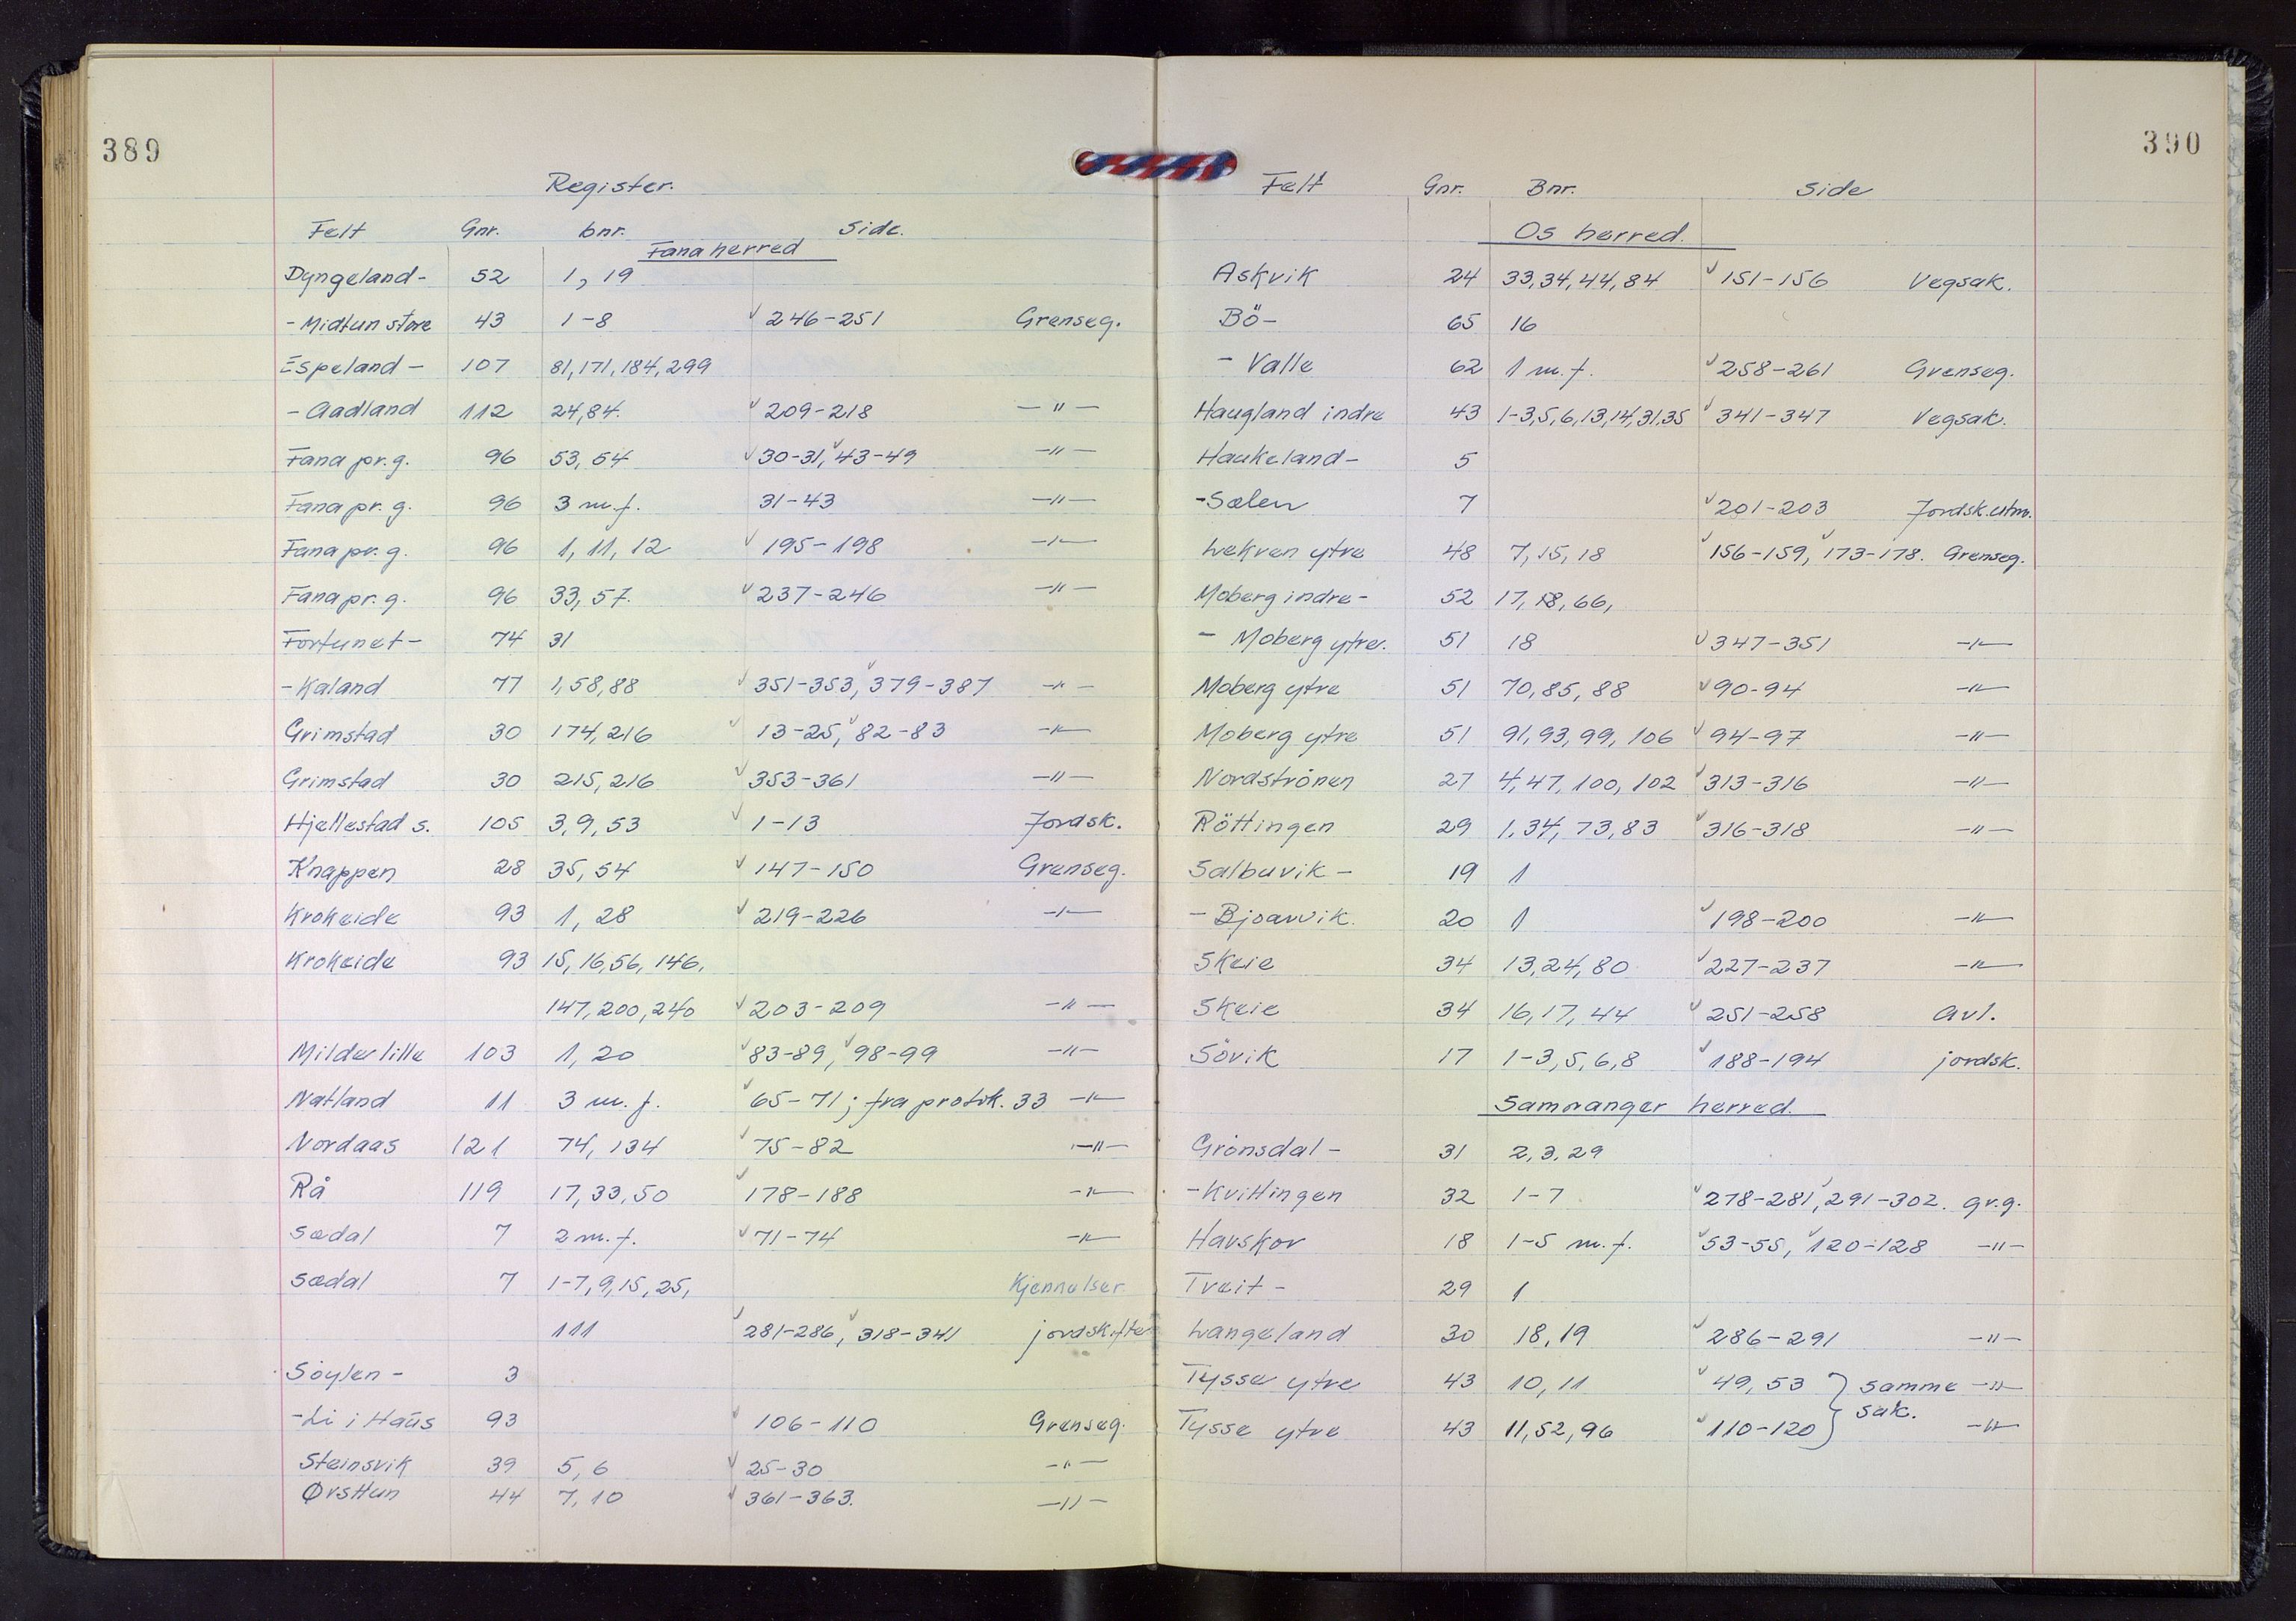 389
Register.
Felt Gnr. bnr. Side.
Fana herred
Dyngeland- 52 1, 19
-Midtun store 43 1-8 √ 246-251 Grenseg.
Espeland- 107 81, 171, 184, 299
-Aadland 112 24, 84. √ 209-218 -"-
Fana pr.g. 96 53, 54 √ 30-31, √ 43-49 -"-
Fana pr.g. 96 3 m.f. 31-43 -"-
Fana pr.g. 96 1, 11, 12 √ 195-198 -"-
Fana pr.g. 96 33, 57. √ 237-246 -"-
Fortunet- 74 31
-Kaland 77 1, 58, 88 √ 351-353, √ 379-387 -"-
Grimstad 30 174, 216 √ 13-25, √ 82-83 -"-
Grimstad 30 215, 216 √ 353-361 -"-
Hjellestad s. 105 3, 9, 53 √ 1-13 Jordsk.
Knappen 28 35, 54 √ 147-150 Grenseg.
Krokeide 93 1, 28 √ 219-226 -"-
Krokeide 93 15, 16, 56, 146,
147, 200, 240 √ 203-209 -"-
Milde lille 103 1, 20 √ 83-89, √ 98-99 -"-
Natland 11 3 m.f. √ 65-71; fra protok. 33 -"-
Nordaas 121 74, 134 √ 75-82 -"-
Rå 119 17, 33, 50 √ 178-188 -"-
Sædal 7 2 m.f. √ 71-74 -"-
Sædal 7 1-7, 9, 15, 25, Kjennelser
111 √ 281-286, √ 318-341 jordskifte
Söylen- 3
-Li i Haus 93 √ 106-110 Grenseg.
Steinsvik 39 5, 6 √ 25-30 -"-
Ørsttun 44 7, 10 √ 361-363. -"-
390
Felt Gnr. Bnr. Side
Os herred.
Askvik 24 33, 34, 44, 84 √ 151-156 Vegsak.
Bö- 65 16
- Valle 62 1 m.f. √ 258-261 Grenseg.
Haugland indre 43 1-3, 5, 6, 13, 14, 31, 35 √ 341-347 Vegsak.
Haukeland- 5
-Sælen 7 √ 201-203 Jordsk.utm.
Lekven ytre 48 7, 15, 18 √ 156-159, √ 173-178. Grenseg.
Moberg indre- 52 17, 18, 66,
- Moberg ytre. 51 18 √ 347-351 -"-
Moberg ytre 51 70, 85, 88 √ 90-94 -"-
Moberg ytre 51 91, 93, 99, 106 √ 94-97 -"-
Nordströnen 27 4, 47, 100, 102 √ 313-316 -"-
Röttingen 29 1, 34, 73, 83 √ 316-318 -"-
Salbuvik- 19 1
-Bjoarvik. 20 1 √ 198-200 -"-
Skeie 34 13, 24, 80 √ 227-237 -"-
Skeie 34 16, 17, 44 √ 251-258 Avl.
Sövik 17 1-3, 5, 6, 8 √ 188-194 jordsk.
Samnanger herred.
Grönsdal- 31 2, 3, 29
-Kvittingen 32 1-7 √ 278-281, √ 291-302. gr.g.
Havskor 18 1-5 m.f. √ 53-55, √ 120-128 -"-
Tveit- 29 1
Langeland 30 18, 19 √ 286-291 -"-
Tysse ytre 43 10, 11 √ 49, 53 } samme -"-
sak.
Tysse ytre 43 11, 52, 96 √ 110-120 -"-